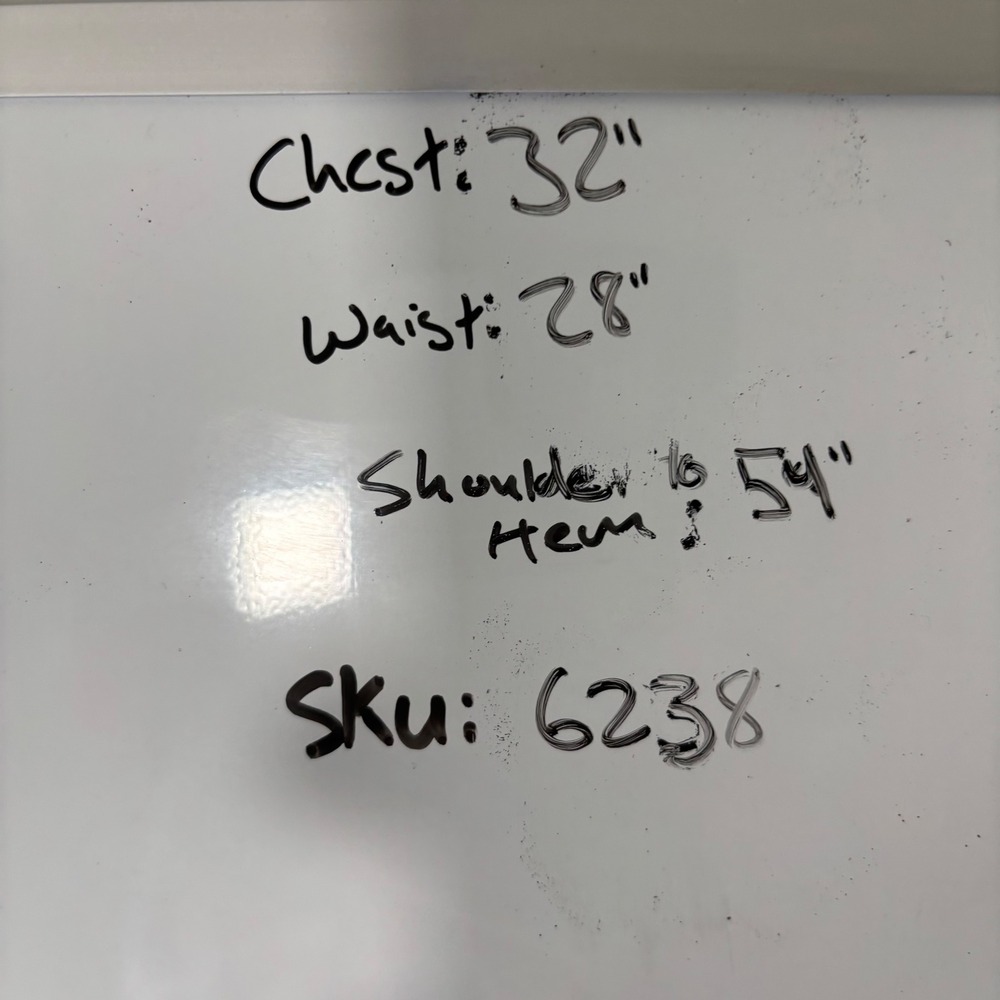 Chest: 32"
Waist: 28"
Shoulder to
Hem: 54"
SKU: 6238